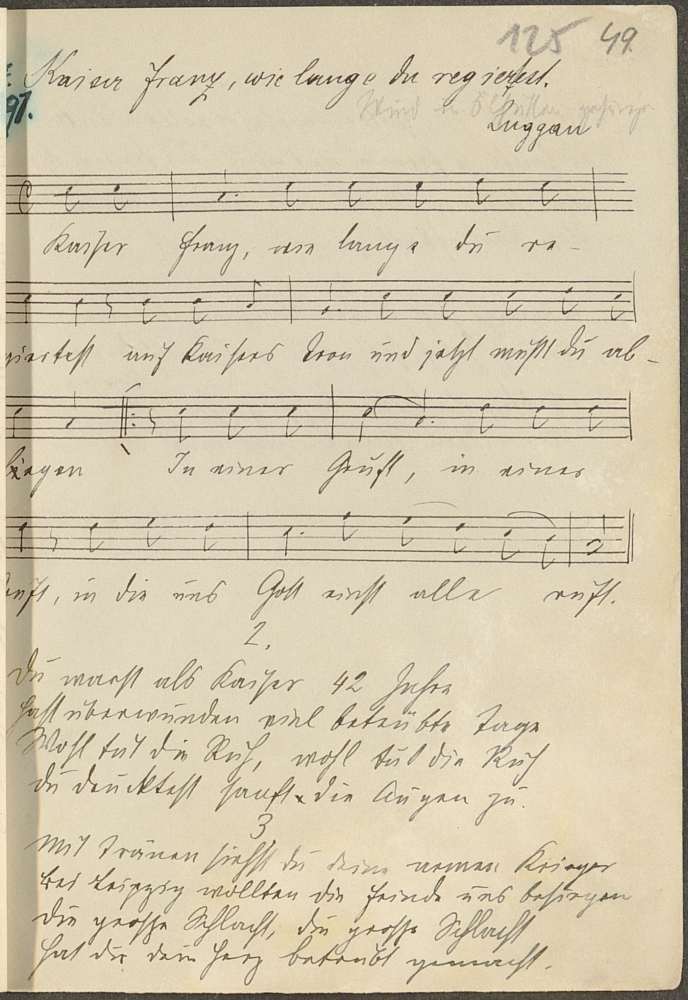 125 49.
Kaiser Franz, wie lange du regiertest.
97.
Luggau
Kaiser Franz, wie lange du re-
giertest auf Kaisers Tron und jetzt mußt du ab-
liegen In einer Gruft, in einer
Gruft, in die uns Gott einst alle ruft.
2.
Du warst als Kaiser 42 Jahre
hast überwunden viel betrübte Tage
Wohl tut die Ruh, wohl tut die Ruh
du drucktest sanft die Augen zu.
3
Mit Tränen siehst du deine armen Krieger
bei Leipzig wollten die Feinde uns besiegen
die große Schlacht, die große Schlacht
hat dir dein Herz betrübt gemacht.